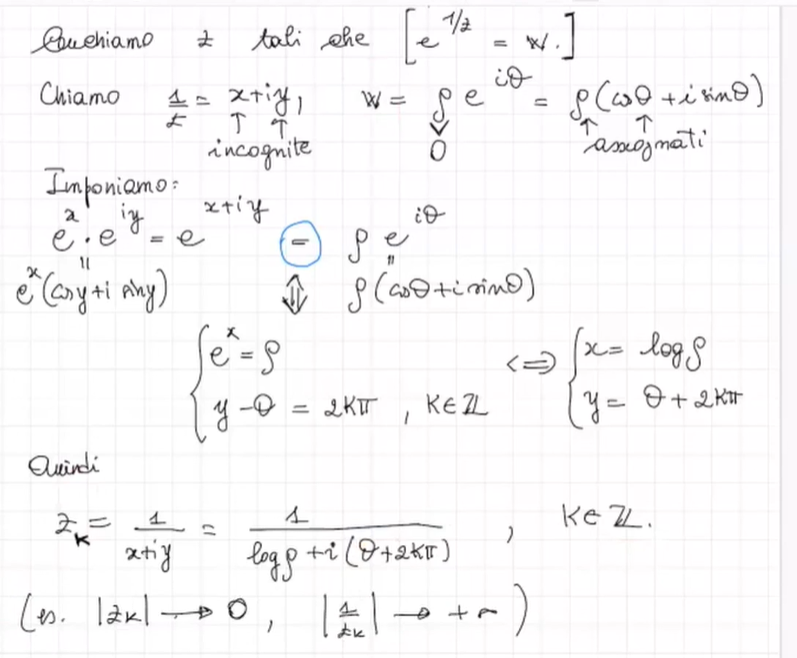 Cerchiamo z tali che [e^{1/z} = w.]
Chiamo 1/z = x+iy, w = ρ e^{iθ} = ρ(cosθ + i sinθ)
↑ ↑ ↑ ↑
incognite 0 assegnati
Imponiamo:
e^x · e^{iy} = e^{x+iy} = ρ e^{iθ}
e^x(cosy + i siny) ⇕ ρ(cosθ + i sinθ)
{ e^x = ρ <=> { x = logρ
y - θ = 2kπ , k∈ℤ y = θ + 2kπ
Quindi
z_k = 1/(x+iy) = 1/(logρ + i(θ+2kπ)) , k∈ℤ.
(es. |z_k| → 0, |1/z_k| → +∞)